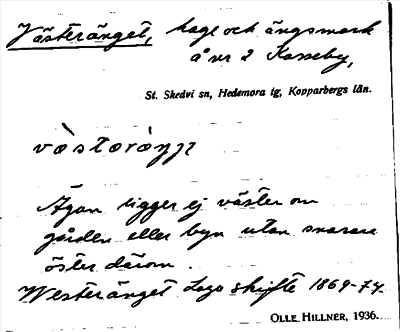 Västeränget, hage och ängsmark
å nr 2 Kasseby,
St. Skedvi sn, Hedemora tg, Kopparbergs län.
Ägan ligger ej väster om
gården eller byn utan snarare
öster därom.
Westeränget Laga skifte 1869-74.
OLLE HILLNER, 1936.